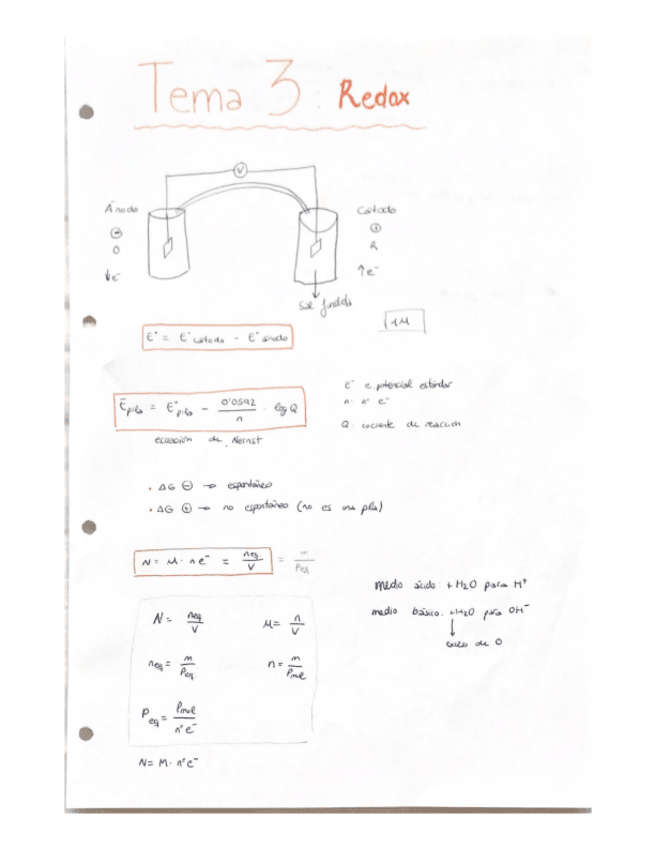 Tema 3: Redox
V
Ánodo
⊖
O
↓e⁻
Cátodo
⊕
R
↑e⁻
Sal fundida
1M
E° = E°cátodo - E°ánodo
Epila = E°pila - 0'0592/n · log Q
ecuación de Nernst
E° e. potencial estándar
n: nº e⁻
Q: cociente de reacción
· ΔG ⊖ → espontáneo
· ΔG ⊕ → no espontáneo (no es una pila)
N = M · n e⁻ = neq/V = m/Peq
medio ácido: + H2O para H⁺
medio básico: +H2O para OH⁻
↓
de O
N = neq/V
M = n/V
neq = m/Peq
n = m/Pmol
Peq = Pmol/nºe⁻
N = M · nºe⁻